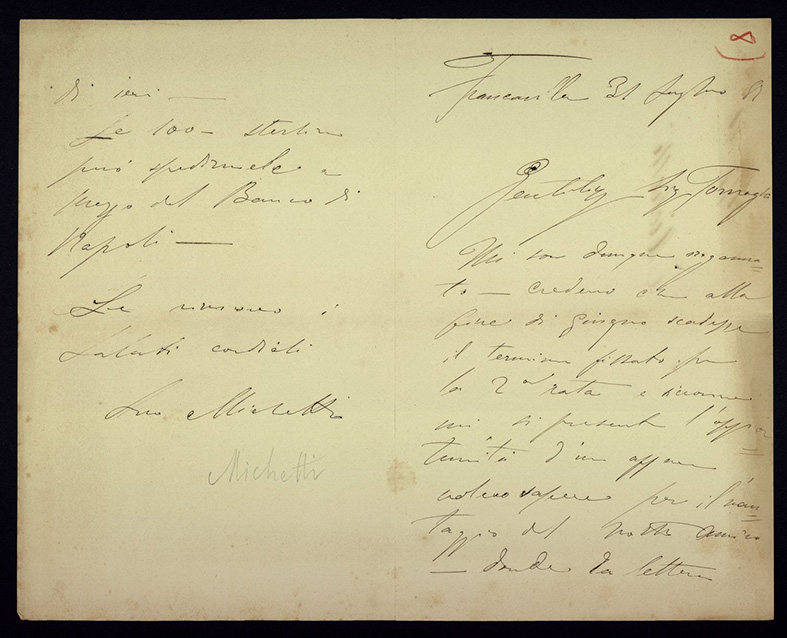 8
Francavilla 31 Luglio 81
Gentiliss Sig Tornaghi
Mi son dunque inganna=
to — credevo che alla
fine di giugno scadesse
il termine fissato per
la 2ª rata e siccome
mi si presenta l'oppor=
tunità d'un affare
volevo sapere per il van=
taggio del nostro amico
— donde la lettera
di ieri —
Le 100 — sterline
può spedirmele a
mezzo del Banco di
Napoli —
Le rinnovo i
saluti cordiali
Suo Michetti
Michetti